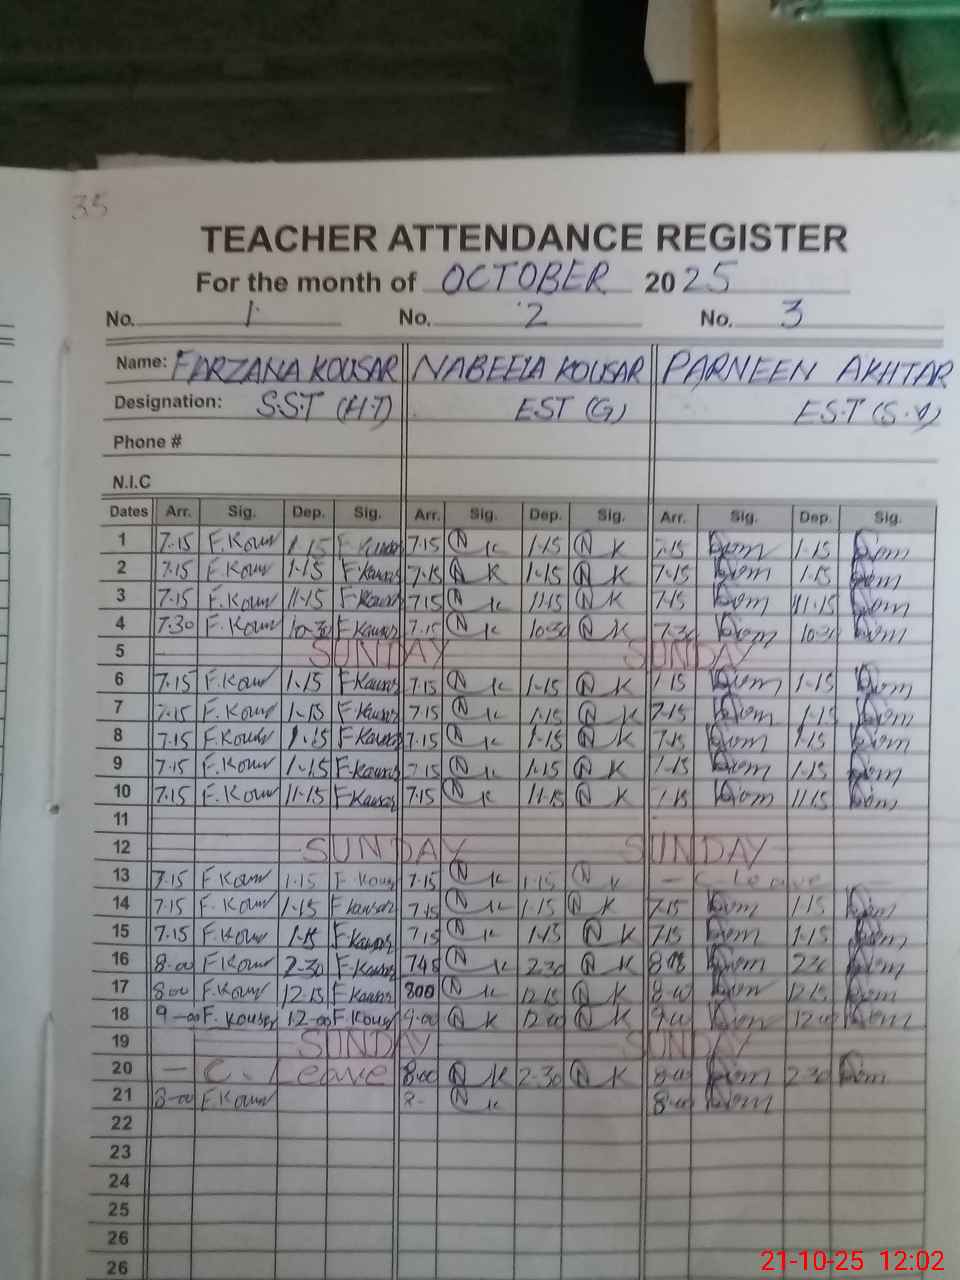 35
TEACHER ATTENDANCE REGISTER
For the month of OCTOBER 2025
No. 1 No. 2 No. 3
Name: FARZANA KOUSAR NABEELA KOUSAR PARNEEN AKHTAR
Designation: S.S.T (H.T) EST (G) E.S.T (S.V)
Phone #
N.I.C
Dates Arr. Sig. Dep. Sig. Arr. Sig. Dep. Sig. Arr. Sig. Dep. Sig.
1 7.15 F.Kousr 1-15 F Kausar 7.15 N K 1-15 N K 7-15 1-15
2 7.15 F.Kousr 1-15 F Kausar 7-15 N K 1-15 N K 7-15 1-15
3 7.15 F.Kousr 11-15 F Kausar 7.15 N K 11-15 N K 7-15 11-15
4 7.30 F.Kousr 10-30 F Kausar 7.15 N K 10-30 N K 7-30 10-30
5 SUNDAY SUNDAY
6 7.15 F.Kousr 1-15 F Kausar 7.15 N K 1-15 N K 7-15 1-15
7 7.15 F.Kousr 1-15 F.Kausar 7.15 N K 1-15 N K 7-15 1-15
8 7.15 F.Kousr 1-15 F.Kausar 7.15 N K 1-15 N K 7-15 1-15
9 7.15 F.Kousr 1-15 F.Kausar 7.15 N K 1-15 N K 1-15 1-15
10 7.15 F.Kousr 11-15 F Kausar 7.15 N K 11-15 N K 7-15 11-15
11
12 SUNDAY SUNDAY
13 7.15 F.Kousr 1-15 F Kous 7.15 N K 1-15 N K - C leave -
14 7.15 F.Kousr 1-15 F kausar 7.15 N K 1-15 N K 7.15 1-15
15 7.15 F.Kousr 1-15 F.Kausar 7.15 N K 1-15 N K 7.15 1-15
16 8-00 F.Kousr 2-30 F-Kausar 745 N K 2-30 N K 2-30
17 800 F.Kousr 12-15 F Kausar 800 N K 12-15 N K 8-00 12-15
18 9-00 F. Kousar 12-00 F.Kous 9.00 N K 12-00 N K 9-00 12-00
19 SUNDAY SUNDAY
20 - C. Leave 8.00 N K 2-30 N K 8-00 2-30
21 8-00 F.Kousr 8- N K 8-00
22
23
24
25
26
26
21-10-25 12:02